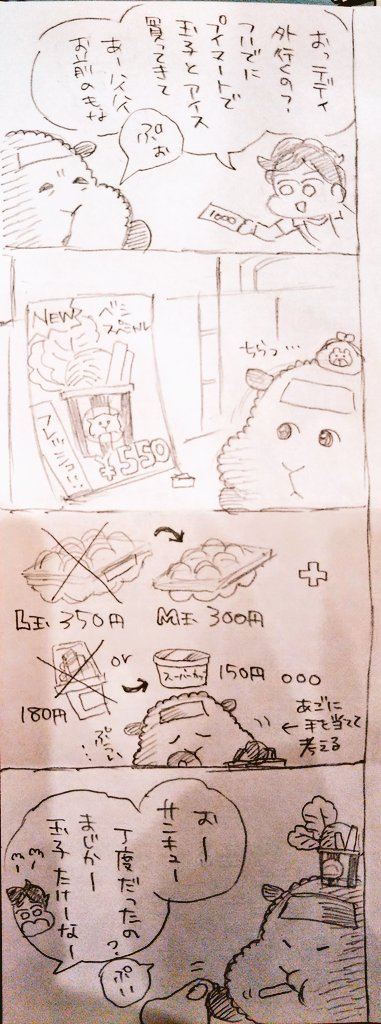 おっデディ
外行くの?
ついでに
プイマートで
玉子とアイス
買ってきて
あー父父
お前のもな
ぷぉ
1000
NEW
ベジ
スペシャル
¥550
ちらっ…
L玉 350円
M玉 300円
+
180円
or
スーパーカップ
150円
ぷぅ…
←あごに
手を当てて
考える
おー
サンキュー
丁度だったの?
まじかー
玉子たけーなー
ぷい